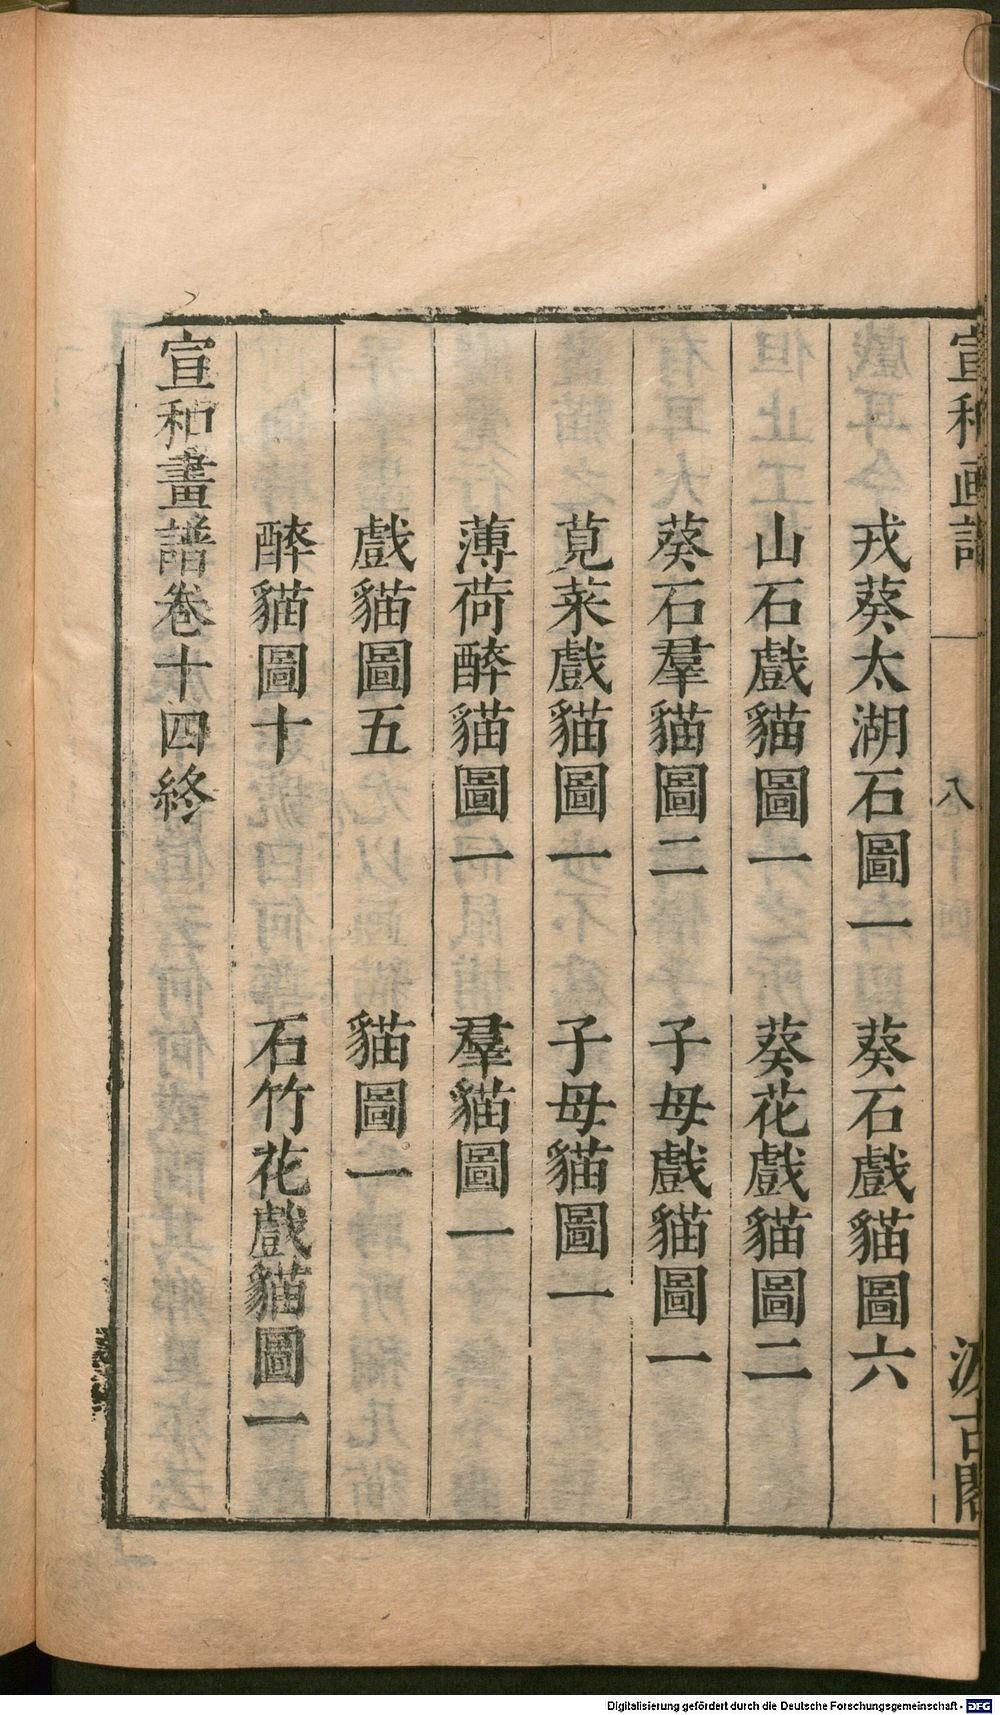 宣和画譜
八
汲古閣
戎葵太湖石圖一　葵石戲貓圖六
山石戲貓圖一　葵花戲貓圖二
葵石羣貓圖二　子母戲貓圖一
莧菜戲貓圖一　子母貓圖一
薄荷醉貓圖一　羣貓圖一
戲貓圖五　貓圖一
醉貓圖十　石竹花戲貓圖一
宣和畫譜卷十四終
Digitalisierung gefördert durch die Deutsche Forschungsgemeinschaft - DFG